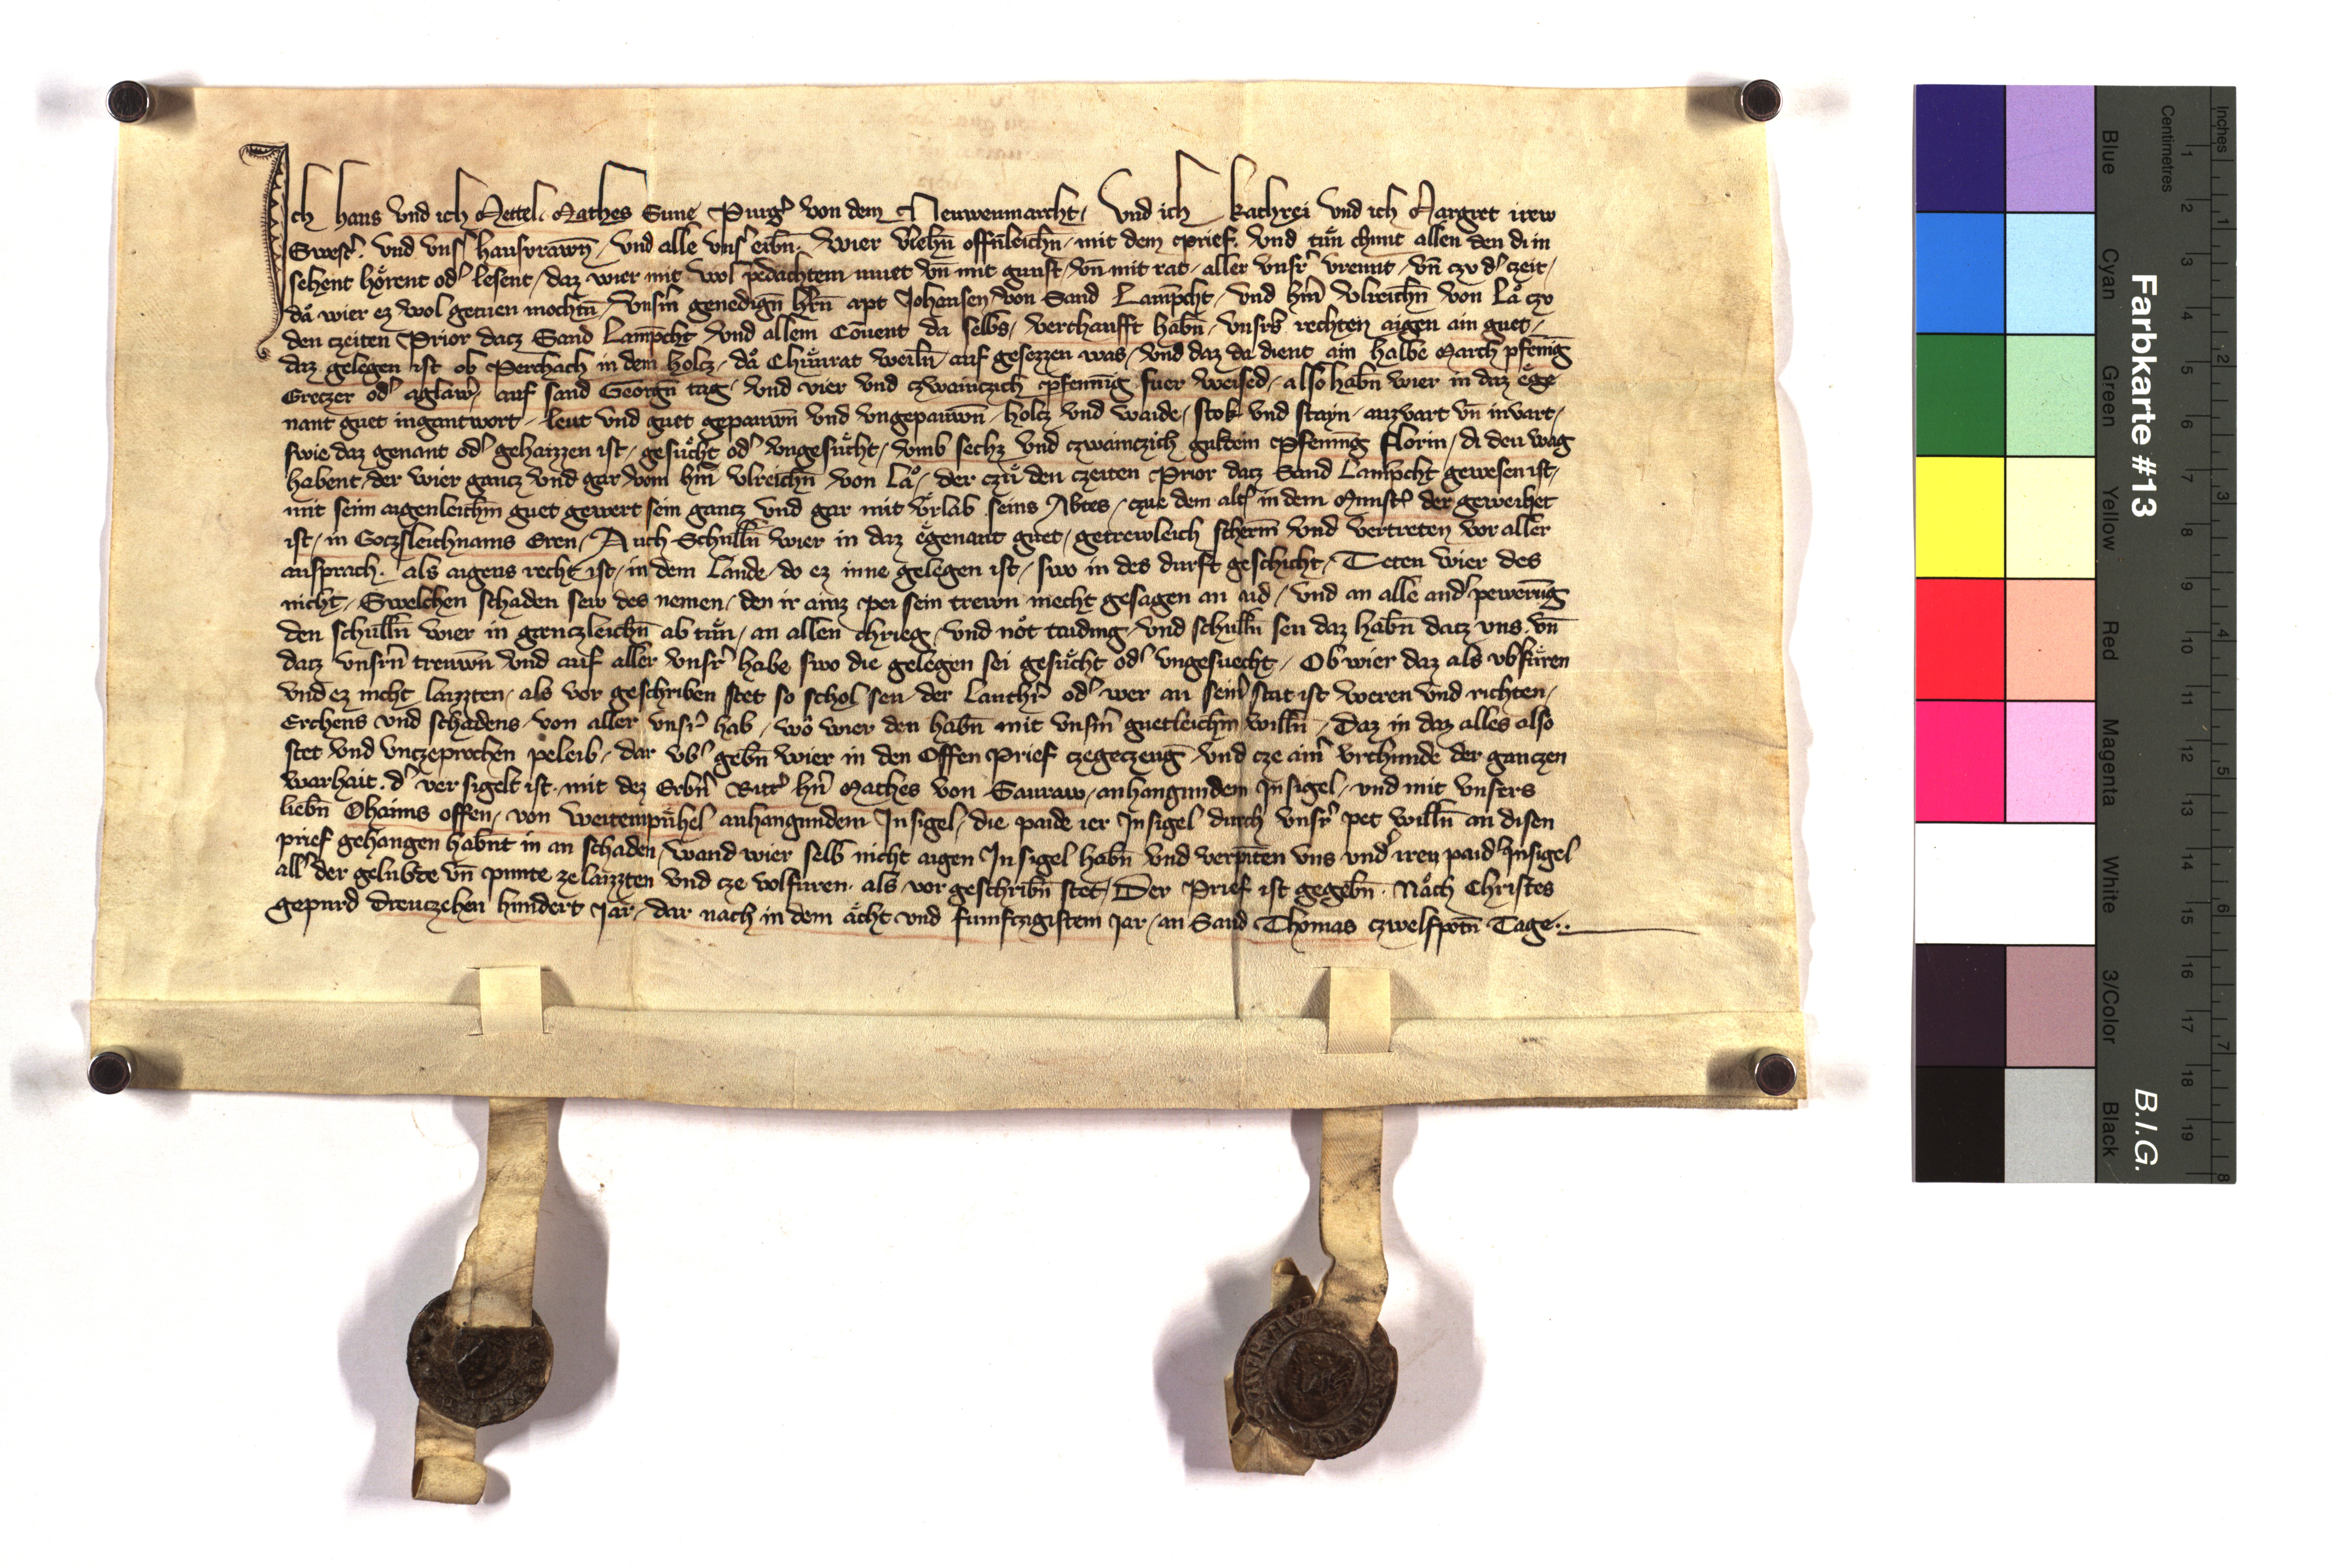 Ich Hans vnd ich Mettel Mathes Sune Purg̾ von dem Neuwenmarcht, Vnd ich Kathrei vnd ich Margret irew
Swest̾. vnd vns̾ hausvrawn̄, vnd alle vns̾ eibn̄. Wier v̾iehn̄ offn̄leichn̄, mit dem prief. Vnd tuͤn chunt allen den di in
sehent hoͤrent od̾ lesent, daz wier mit wol p̄dachtem muet vn̄ mit gunst, vn̄ mit rat, aller vnsr̾ vreunt, vn̄ czv d̾ czeit,
da wier ez wol getuen mochtn̄, Vnsm̄ genedign̄ hrn̄ apt Johansen, von Sand Lamp̄cht, vnd hm̄ Vlreichn̄ von La czv
den czeiten Prior dacz Sand Lamp̄cht vnd allem Co̅uent da selbs, verchaufft habn̄, vnsrs rechten aigen ain guet,
daz gelegen ist ob Perchach in dem holcz, da Chunrat weiln̄ auf gesezzen was, vnd daz da dient ain halbe March pfenīg
Greczer od̾ aglaw̾, auf sand Georgn̄ tag, vnd vier vnd czwainczich pfennīg fuer weised, also habn̄ wier in daz ege
nant guet ingantwort, leut vnd guet gepauwn̄ vnd vngepauwn̄, holcz vnd waide, stok vnd stayn, auzvart vn̄ invart,
swie daz genant od̾ gehaizzen ist, gesuͤcht od̾ vngesuͤcht, vmb sechz vnd czwainczich guldein pfennīg florin, di den wag
habent, der wier gancz vnd gar vom hm̄ Vlreichn̄ von La, der czuͤ den czeiten Prior dacz Sand Lamp̄cht gewesen ist,
mit seim aigenleichm̄ guet gewert sein gancz vnd gar mit vrlab seins Abtes, czue dem alt̾ in dem Munst̾ der geweihet
ist, in Goczsleichnams Eren, Auch Schulln̄ wier in daz egenant guet, getrewleich scherm̄ vnd vertreten vor aller
ansprach. als aigens recht ist, in dem Lande, do ez inne gelegen ist, swo in des durft geschicht, Teten wier des
nicht, Swelchen schaden sew des nemen, den ir ainz pei sein trewn mecht gesagen an aid, vnd an alle and̾ pewerūg
den schulln̄ wier in genczleichn̄ ab tuͤn, an allen chrieg, vnd not taiding, vnd schulln̄ seu daz habn̄ dacz vns. vn̄
dacz vnsrn̄ treuwn̄ vnd auf aller vnsr̾ habe swo die gelegen sei gesuͤcht od̾ vngesuecht, Ob wier daz als vb̾fuͤren
vnd ez nicht laizzten, als vor geschriben stet so schol seu der Lantherr̾ od̾ wer an seim̾ stat ist weren vnd richten,
Erchens vnd schadens, von aller vnsr̾ hab, wo wier den habn̄ mit vnsm̄ guetleichm̄ willn̄, Daz in daz alles also
stet vnd vnczeprochen peleib, dar vb̾ gebn̄ wier in den Offen Prief czegeczeug̅ vnd cze aim̾ vrchunde der ganczen
warhait. d̾ ver sigelt ist. mit dez Erbn̄ Ritt̾ hn̄ Mathes von Sauraw, anhangundem Insigel, vnd mit vnsers
liebn̄ Ohaims offen, von Weitempuͤhel anhangundem Insigel, die paide ier Insigel durch vnsr̾ pet willn̄ an disen
prief gehangen habnt in an schaden, wand wier selb nicht aigen Insigel habn̄ vnd verpiten vns vnd̾ ireu paid̾ Insigel
all̾ der gelubte vn̄ punte ze laizzten vnd cze volfuren. als vor geschribn̄ stet, Der Prief ist gegebn̄. Nach Christes
gepurd dreuczehen hundert Jar, dar nach in dem acht vnd fumfczigistem Jar, an Sand Thomas czwelfpotn̄ Tage..
Farbkarte #13
B.I.G.
Inches
Centimetres
1 2 3 4 5 6 7 8
1 2 3 4 5 6 7 8 9 10 11 12 13 14 15 16 17 18 19
Blue
Cyan
Green
Yellow
Red
Magenta
White
3/Color
Black